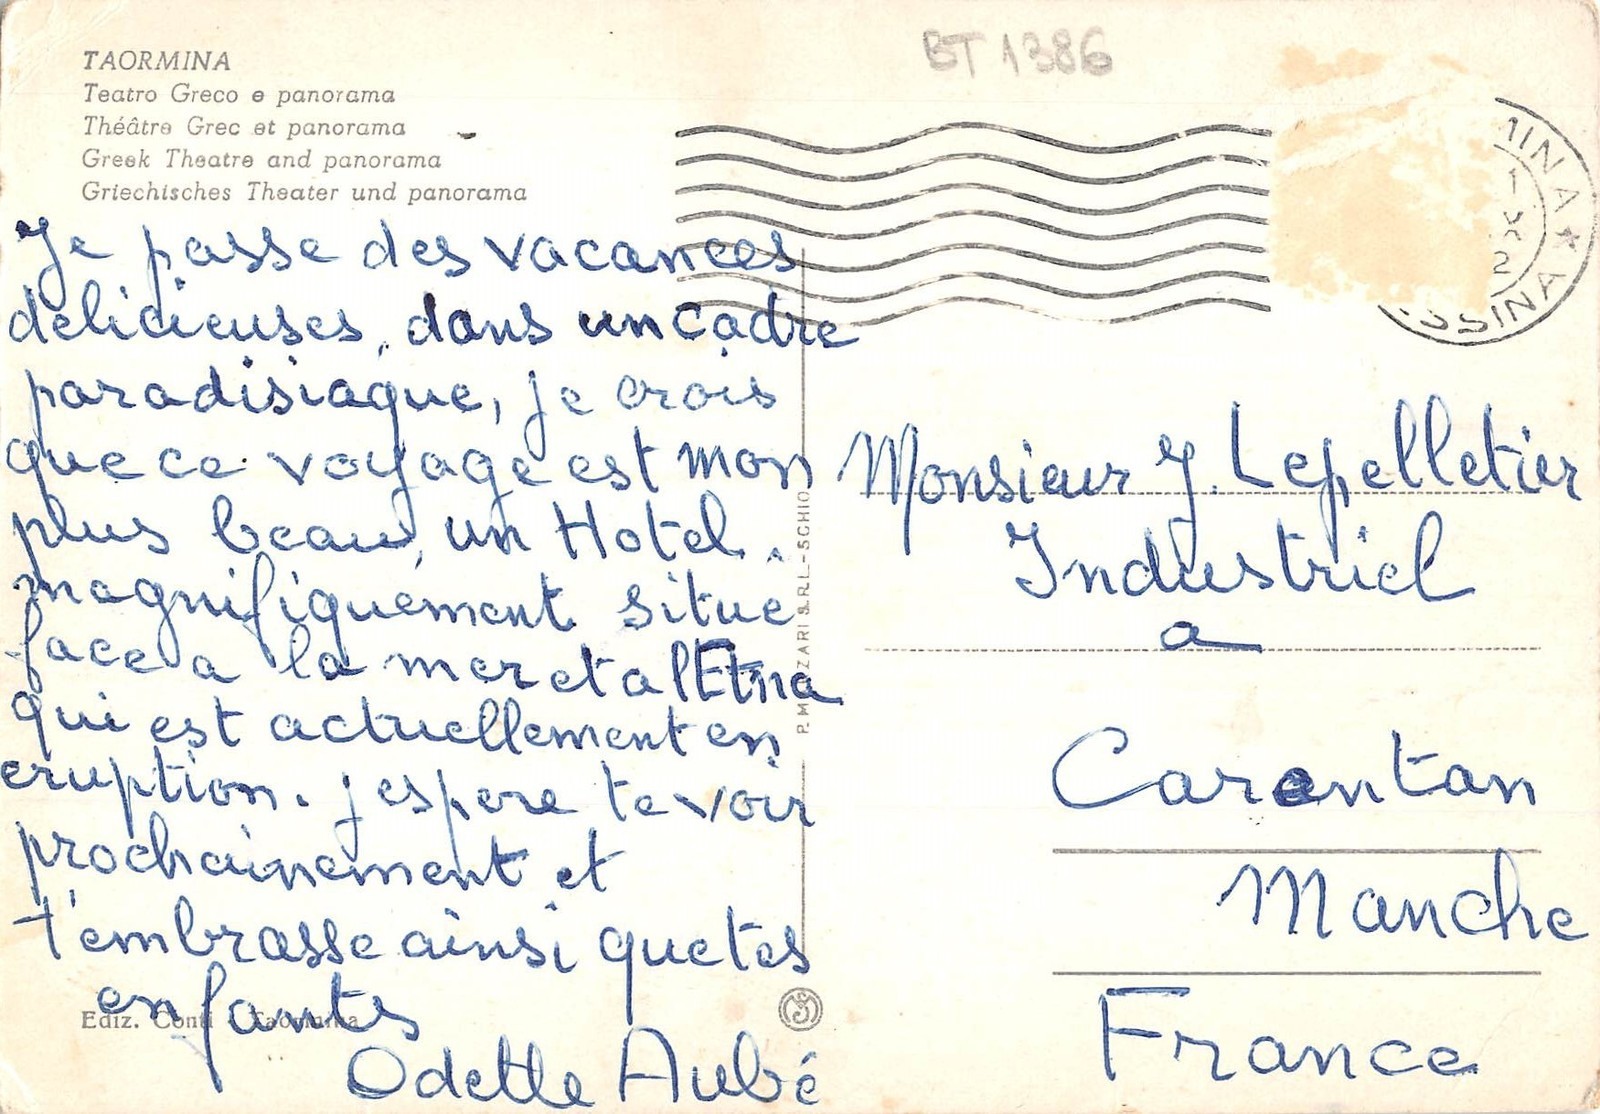 TAORMINA
Teatro Greco e panorama
Théâtre Grec et panorama
Greek Theatre and panorama
Griechisches Theater und panorama
BT 1386
MINA ★
1
X
2
SSINA
Je passe des vacances
délicieuses, dans un cadre
paradisiaque, je crois
que ce voyage est mon
plus beau, un Hotel
magnifiquement situé
face a la mer et a l'Etna
qui est actuellement en
eruption. j espere te voir
prochainement et
t'embrasse ainsi que tes
enfants
Odette Aubé
Ediz. Conti - Taormina
P. MOZARI S.R.L. - SCHIO
Monsieur J. Lepelletier
Industriel
a
Carentan
Manche
France